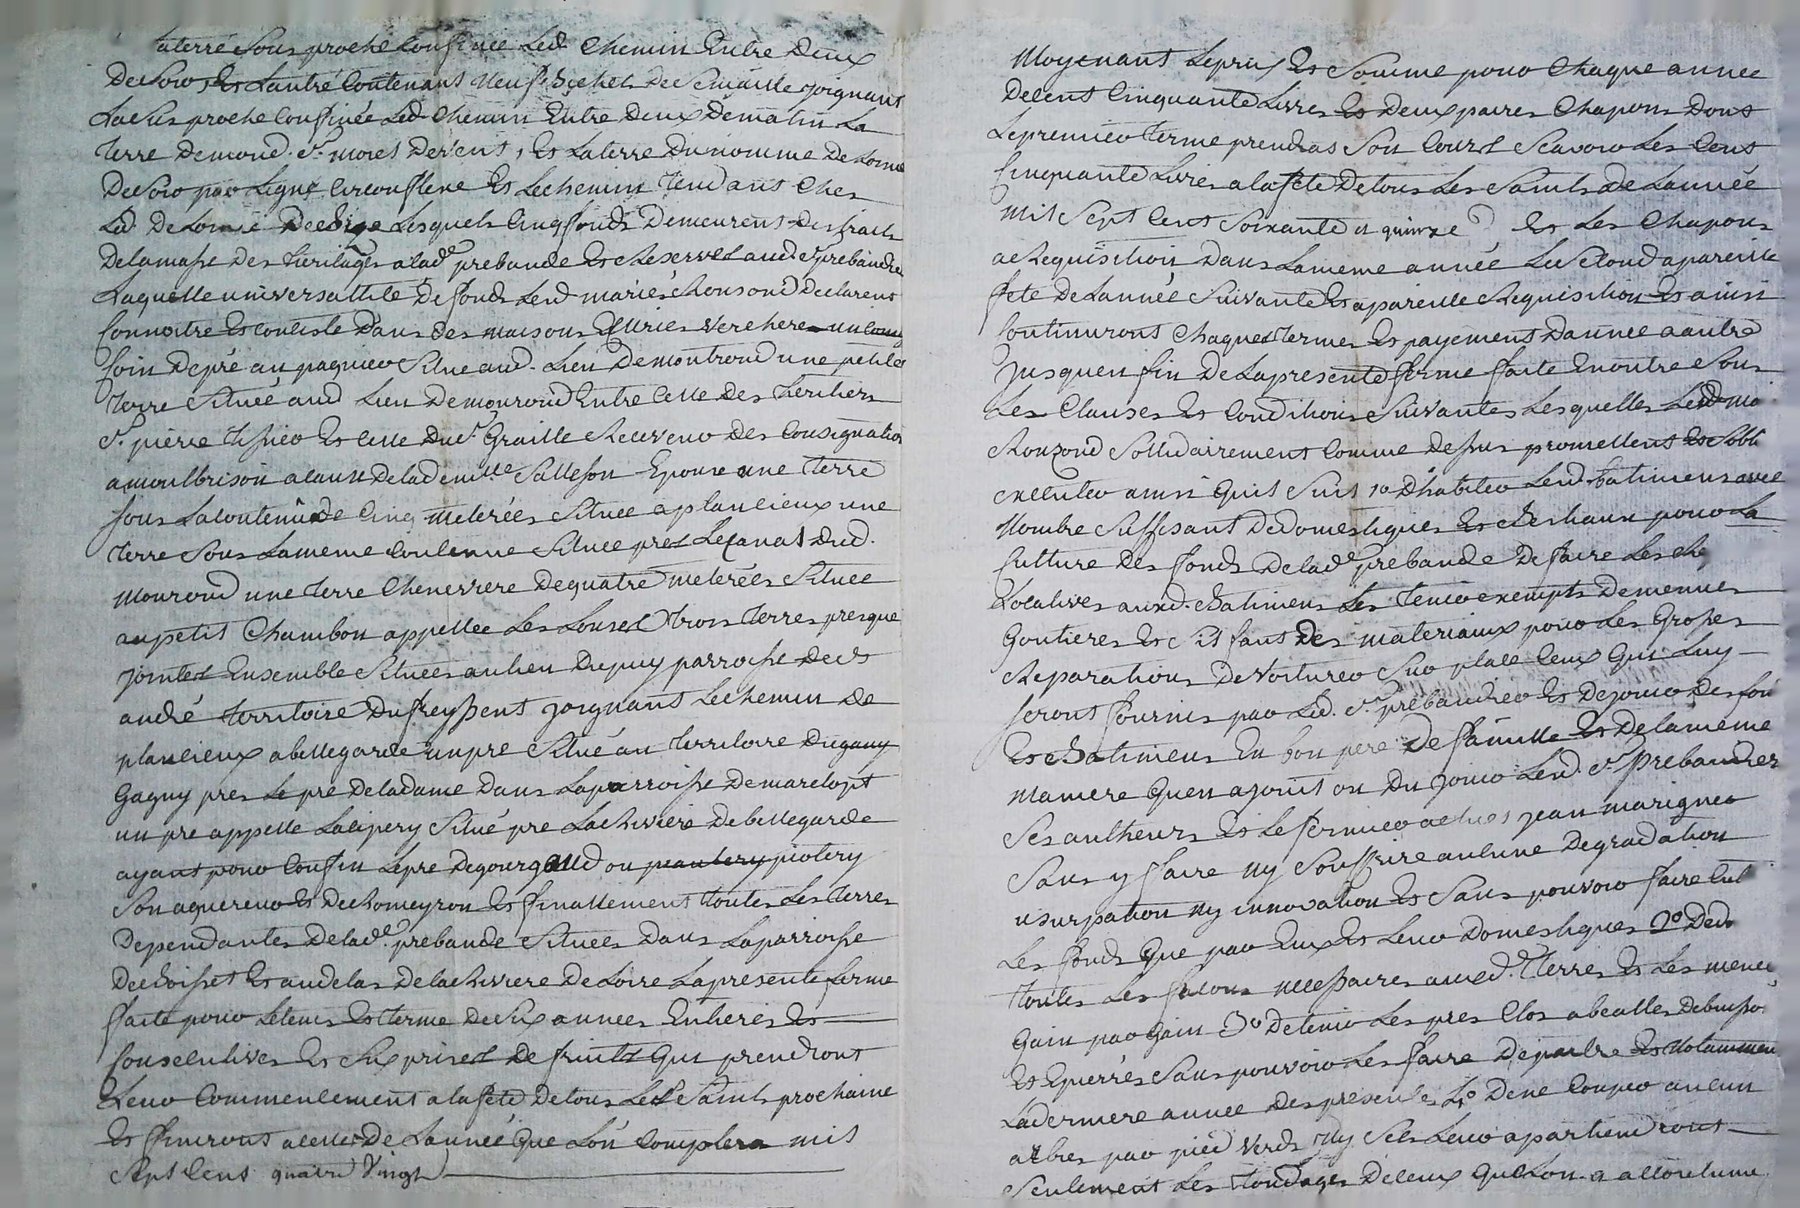 laterre Sous proche Confinée Led. Chemin Entre Deux
De Soir, Et Lautre Contenant Neuf Bichets De Semaille joignant
La Sus proche Confinée Led. Chemin Entre Deux De matin La
Terre De mond. Sr. mores Devent, Et La terre Du nomme De Lorme
De Soir par Ligne Circonflexe Et Le chemin Tendant Ches
Led. De Lorme De bize Lesquels Cinq fonds Demeurent Distraits
De La masse Des heritages a Lade. prebande Et Reserves aud. Sr. prebandier
Laquelle universallité De fonds Lesd. mariés Ronzond Declarent
Connoitre Et Consiste Dans Des maisons Ecuries Verchere un
Coin De pré au paquier Situe aud. Lieu De montrond une petite
Terre Située aud. Lieu De mourond Entre Celle Des heritiers
Sr. pierre Et Celle Du Sr. Graille Receveur Des Consignations
a montbrison a Cause De La demlle. Epouse une Terre
Sous La Contenüe De Cinq Meterées Située a plancieux une
Terre Sous La meme Contenue Situee pres Le Canal Dud.
Mourond une Terre Chenevrere De quatre meterées Située
au petit Chambon appellée Les Trois Terres presque
jointes Ensemble Situées au lieu Dupuy parroisse De St
andré Territoire Du freyssent joignant Le chemin De
plancieux a bellegarde un pre Situé au Territoire Du gauy
Gagny pres Le pré De La dame Dans La parroisse De marclopt
un pre appelle Situé pre La Riviere De bellegarde
ayant pour Confin Le pre De gourgaud ou piotery
Son aquereur Et De Romeyron Et finallement Toutes Les Terres
Dependantes De Lade. prebande Situees Dans La parroisse
De boisset Et au dela De La Riviere De Loire La presente ferme
faite pour Le tems Et Terme De Six années Entieres Et
Consecutives Et Six prises De fruits Qui prendront
Leur Commencement a La fete De tous Les Saints prochaine
Et finiront a Celles De Lannée Que Lon Complera mil
Sept Cent quatre Vingt
Moyenant Le prix Et Somme pour Chaque année
De Cent Cinquante Livres Et Deux paires Chapons Dont
Le premier Terme prendras Son Cours Scavoir Les Cent
Cinquante Livres a La fete De tous Les Saints De Lannée
Mil Sept Cent Soixante et quinze Et Les Chapons
a Requisition Dans La meme année Le Second a pareille
fete De Lannée Suivante Et a pareille Requisition Et ainsi
Continuront Chaques Termes Et payements Dannee a autre
Jusquen fin De La presente ferme faite En outre Sous
Les Clauses Et Conditions Suivantes Lesquelles Lesd. ma
Ronzond Sollidairement Comme Dessus promettent Et Sobli
Executer ainsi Quil Suit 1o Dhabiter Lesd. Batimens avec
Nombre Suffisant De Domestiques Et Bestiaux pour La
Culture Des fonds De Lade. prebande De faire Les Re
Locatives auxd. Batimens Les Tenir exempts De menues
Goutieres Et Sil faut Des materiaux pour Les Grosses
Reparations De Voiturer Sur place Ceux Qui Luy
Seront fournis par Led. Sr. prebandier Et De jouir Des fon
Et Batimens En bon pere De famille Et De La meme
Maniere Quen a jouit ou Du jouir Led. Sr. prebandier
Ses autheurs Et Le fermier actuel jean marignier
Sans y faire Ny Souffrire aucune Degradation
usurpation Ny innovation Et Sans pouvoir faire Cul
Les fonds Que par Eux Et Leur Domestiques 2o De d
Toutes Les facons Necessaires auxd. Terres Et Les mener
Gain par Gain 3o De tenir Les pres Clos abcalles De buisso
Et Epierrés Sans pouvoir Les faire Depaitre Et Notammen
La derniere année Des presentes 4o De ne Couper aucun
arbres par pied Verds Ny Secs Leur apartiendront
Seulement Les Tondages De Ceux Que Lon a accoutume